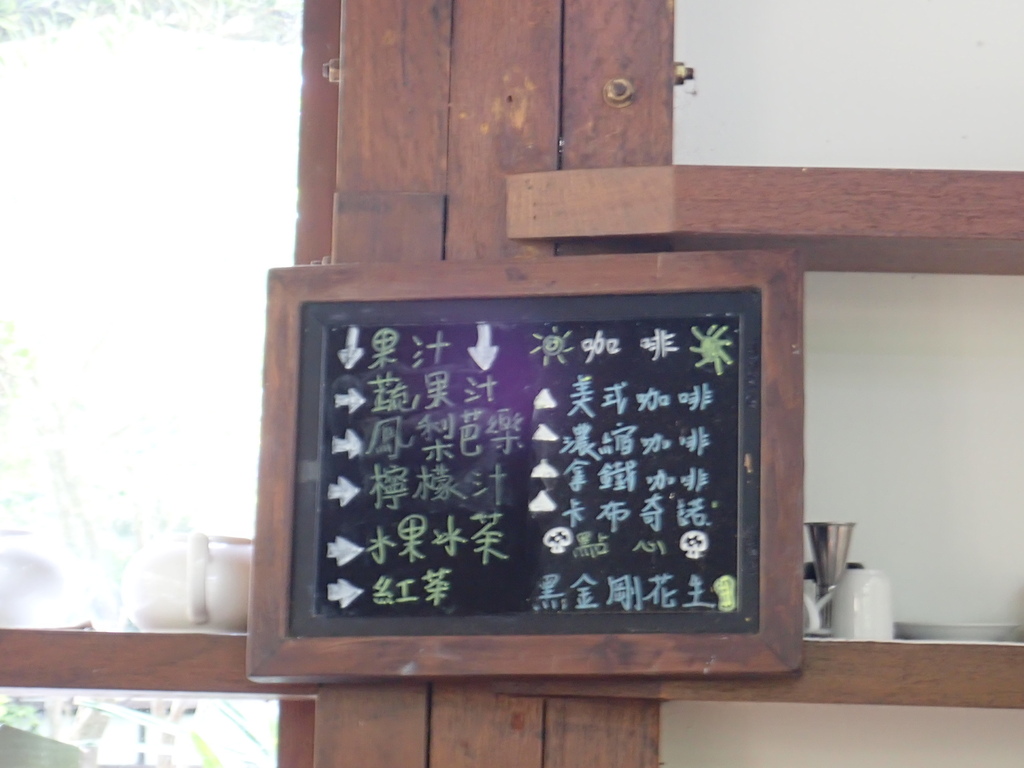 果汁
蔬果汁
鳳梨芭樂
檸檬汁
水果冰茶
紅茶
咖啡
美式咖啡
濃縮咖啡
拿鐵咖啡
卡布奇諾
點心
黑金剛花生